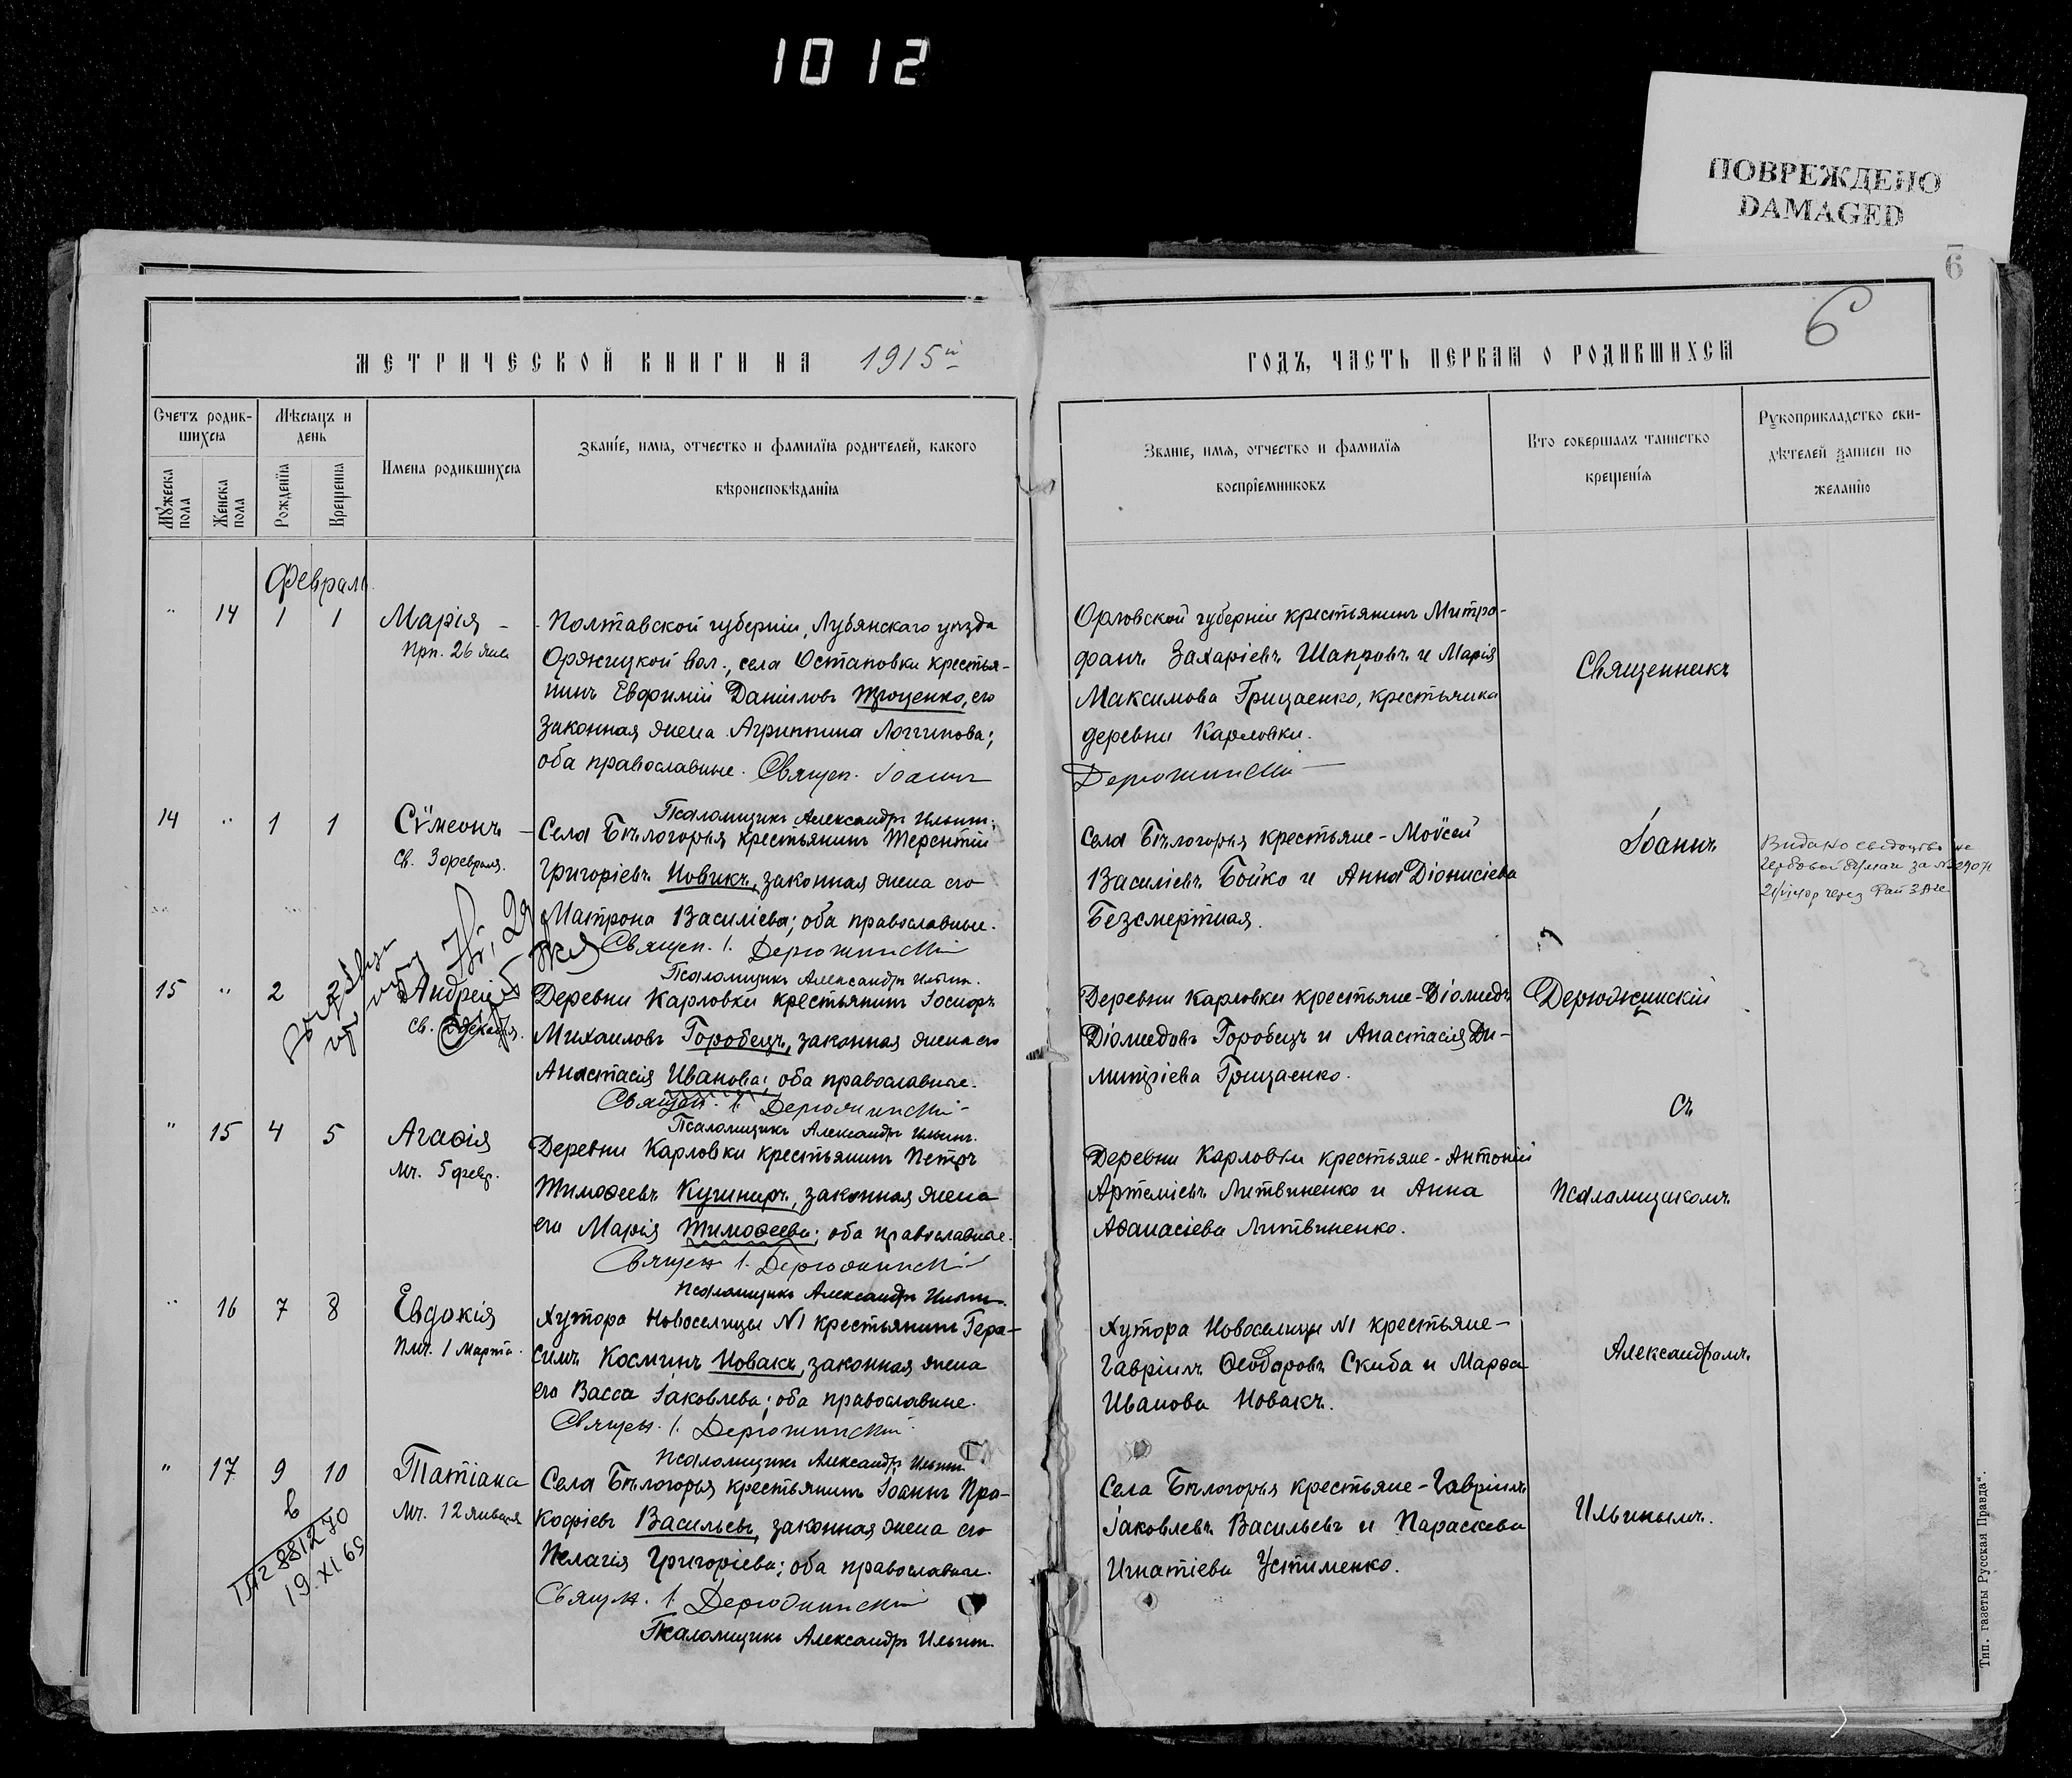 1012
ПОВРЕЖДЕНО
DAMAGED
6
6
МЕТРИЧЕСКОЙ КНИГИ НА 1915й
ГОДЪ, ЧАСТЬ ПЕРВАЯ О РОДИВШИХСЯ
Счетъ родив-
шихся
Мѣсяцъ и
день
Мужеска
пола
Женска
пола
Рожденія
Крещенія
Имена родившихся
Званіе, имя, отчество и фамилія родителей, какого
вѣроисповѣданія
Званіе, имя, отчество и фамилія
воспріемниковъ
Кто совершалъ таинство
крещенія
Рукоприкладство сви-
дѣтелей записи по
желанію
Февраль
" 14 1 1 Марія
Прп. 26 янв.
Полтавской губерніи, Лубянскаго уѣзда
Оржицкой вол., села Остаповки крестья-
нинъ Евфимій Даніиловъ его
законная жена Агриппина Логгинова;
оба православные. Священ. Іоаннъ
Псаломщикъ Александръ Ильинъ.
Орловской губерніи крестьянинъ Митро-
фанъ Захаріевъ и Марія
Максимова Грицаенко, крестьянка
деревни Карловки.
Дерюжинскій
14 " 1 1 Сѵмеонъ
Св. 3 февраля.
Села Бѣлогорья крестьянинъ Терентій
Григоріевъ Новикъ, законная жена его
Матрона Василіева; оба православные.
Священ. І. Дерюжинскій
Псаломщикъ Александръ Ильинъ.
Села Бѣлогорья крестьяне - Моѵсей
Василіевъ Бойко и Анна Діонисіева
Безсмертная.
15 " 2 2 Андрей
Св.
Деревни Карловки крестьянинъ Іосифъ
Михаиловъ Горобецъ, законная жена его
Анастасія Иванова; оба православные.
Священ. І. Дерюжинскій
Псаломщикъ Александръ Ильинъ.
Деревни Карловки крестьяне - Діомидъ
Діомидовъ Горобецъ и Анастасія Ди-
митріева Грицаенко.
" 15 4 5 Агаѳія
Мч. 5 февр.
Деревни Карловки крестьянинъ Петръ
Тимоѳеевъ Кушниръ, законная жена
его Марія Тимоѳеева; оба православные.
Священ. І. Дерюжинскій
Псаломщикъ Александръ Ильинъ.
Деревни Карловки крестьяне - Антоній
Артеміевъ Литвиненко и Анна
Аѳанасіева Литвиненко.
" 16 7 8 Евдокія
Пмч. 1 Марта.
Хутора Новоселицы №1 крестьянинъ Гера-
симъ Косминъ Новакъ, законная жена
его Васса Іаковлева; оба православные.
Священ. І. Дерюжинскій
Псаломщикъ Александръ Ильинъ.
Хутора Новоселицы №1 крестьяне -
Гавріилъ Ѳеодоровъ Скиба и Марѳа
Иванова Новакъ.
" 17 9 10 Татіана
Мч. 12 января
Села Бѣлогорья крестьянинъ Іоаннъ Про-
кофіевъ Васильевъ, законная жена его
Пелагія Григоріева; оба православные.
Священ. І. Дерюжинскій
Псаломщикъ Александръ Ильинъ.
Села Бѣлогорья крестьяне - Гавріилъ
Іаковлевъ Васильевъ и Параскева
Игнатіева Устименко.
Священникъ
Іоаннъ
Дерюжинскій
съ
псаломщикомъ
Александромъ
Ильинымъ.
19.XI 69
Тип. газеты Русская Правда".